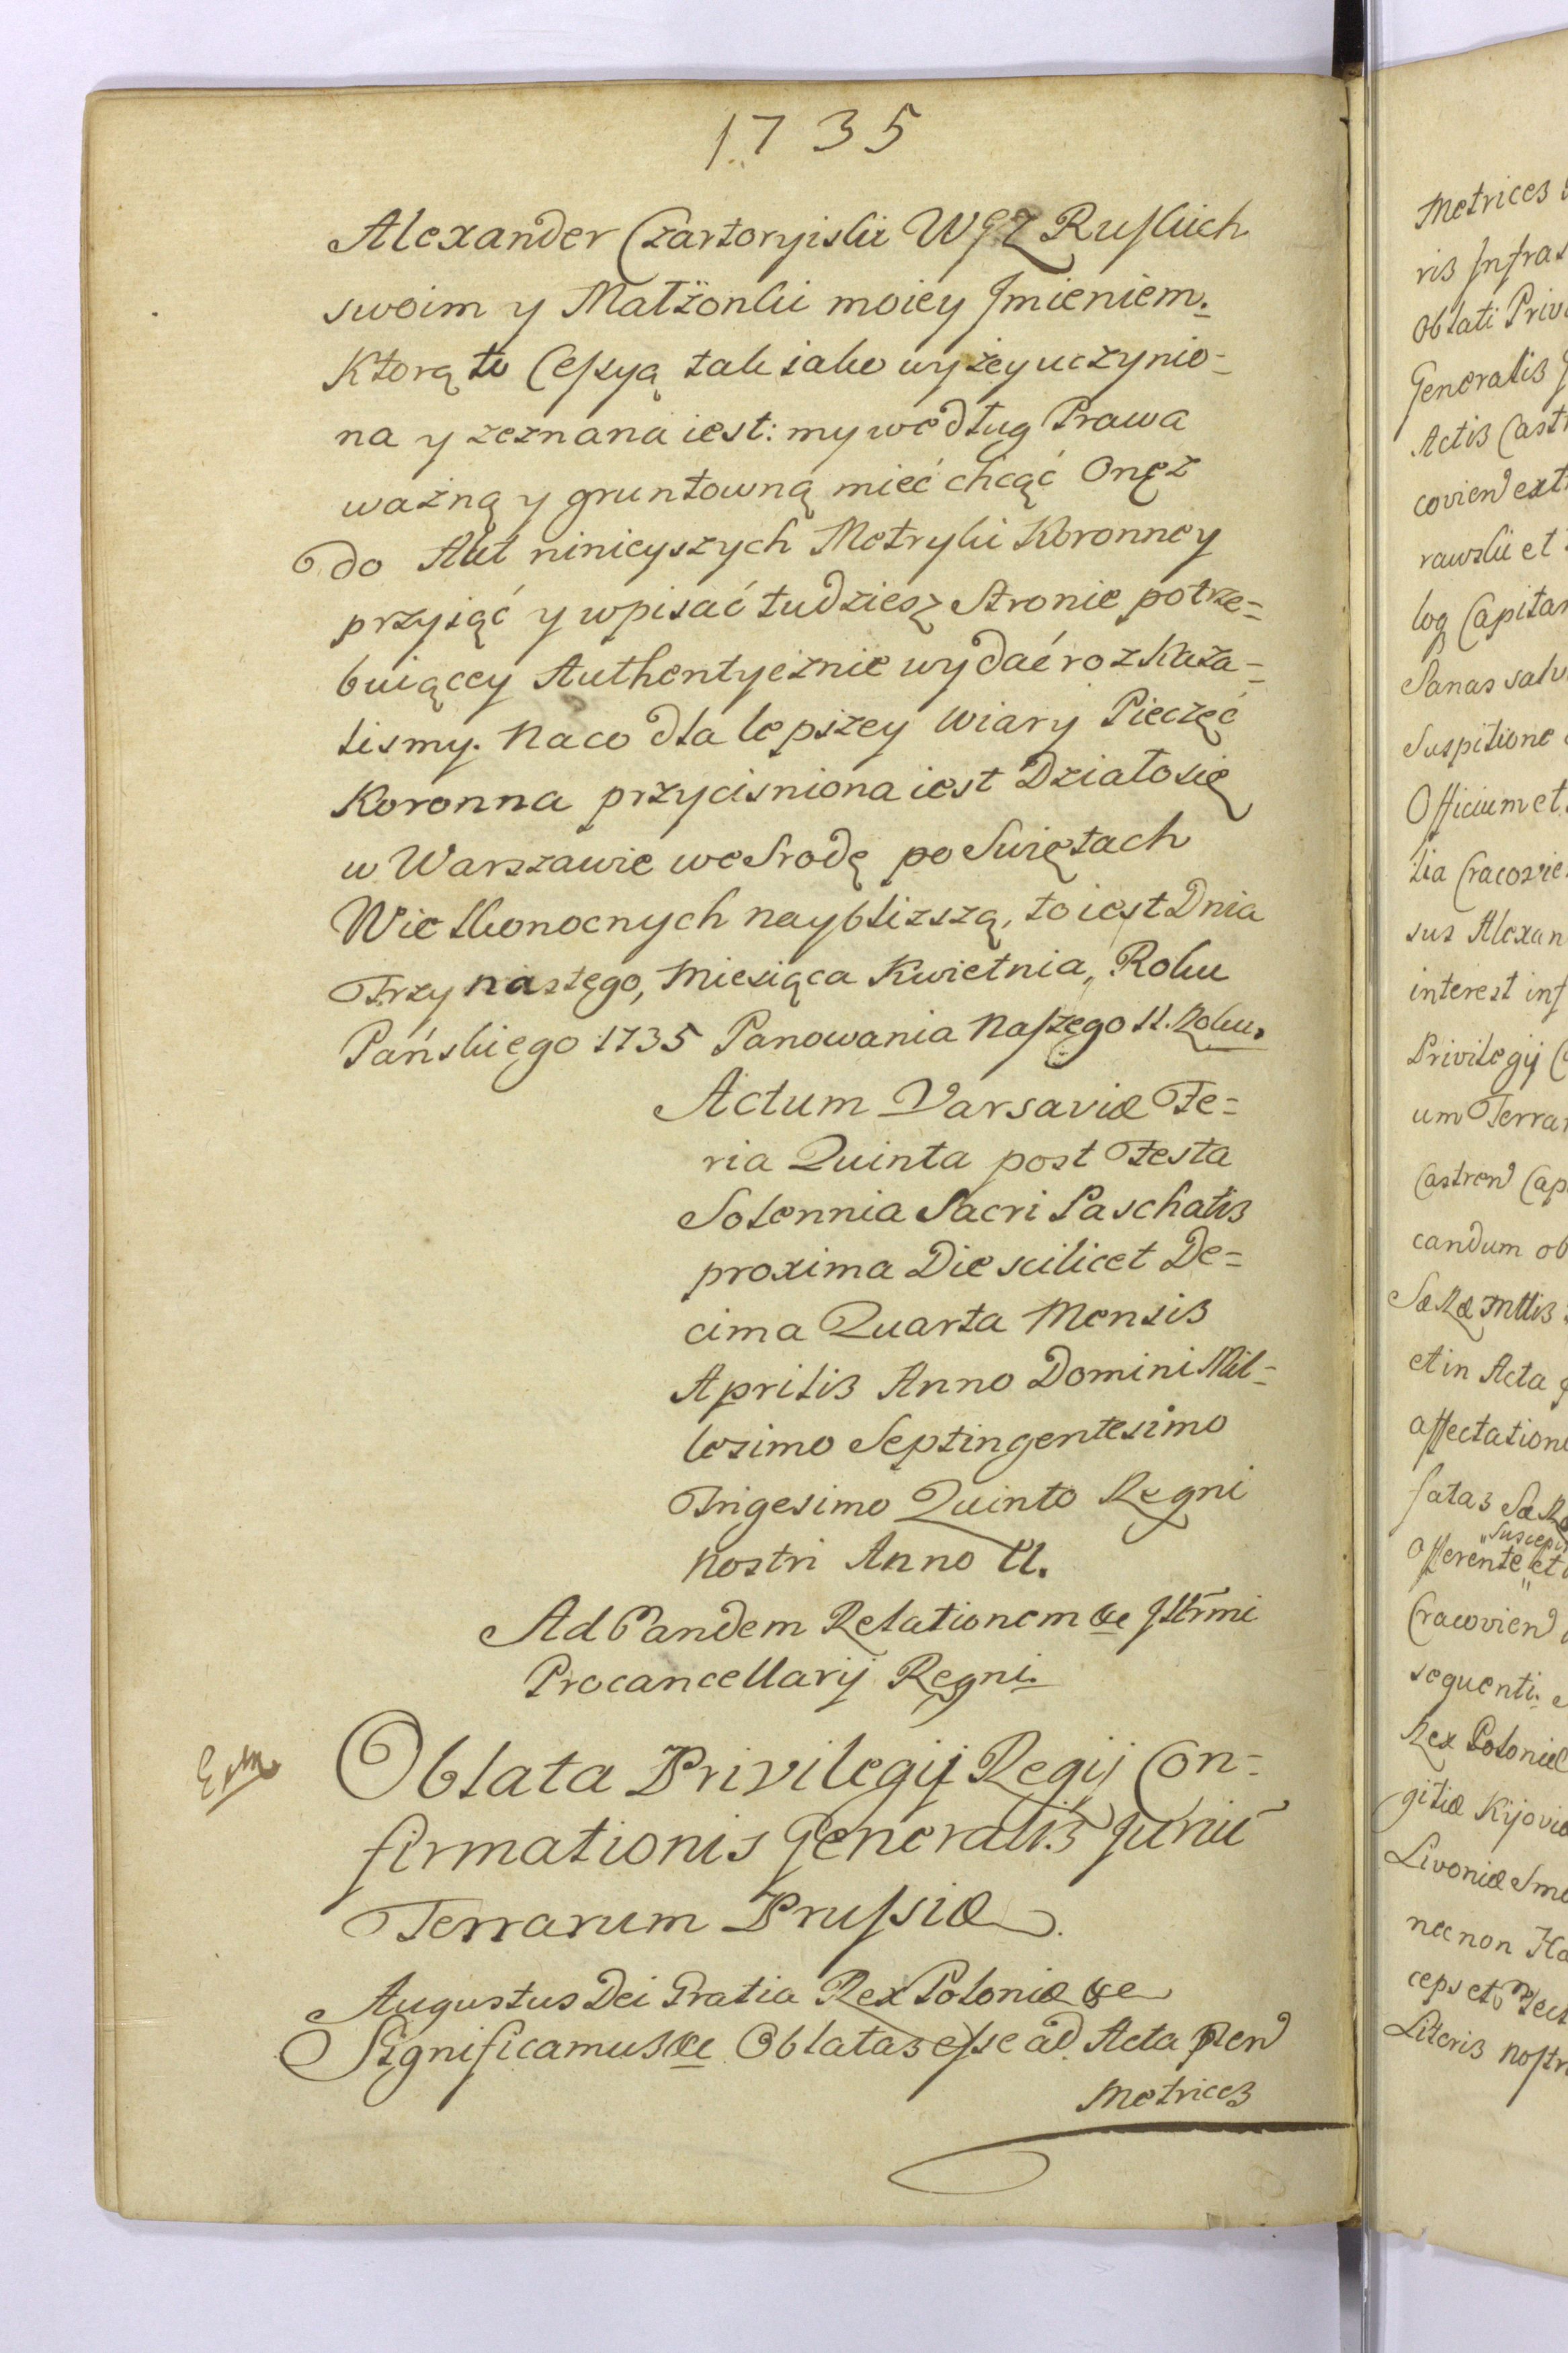 1735
Alexander Czartoryiski WGZ Ruskich
swoim y Małżonki moiey Imieniem.
Ktorą to Cessyą tak iako wyżey uczynio-
na y zeznana iest: my według Prawa
ważną y gruntowną mieć chcąć Onęż
do Akt ninieyszych Metryki Koronney
przyiąć y wpisać tudziesz Stronie potrze=
buiącey Authentycznie wydać rozkaza=
lismy. Na co dla lepszey wiary Pieczęć
Koronna przycisniona iest Działo się
w Warszawie we Srodę po Swiętach
Wielkonocnych nayblizszą, to iest Dnia
Trzynastęgo, Miesiąca Kwietnia, Roku
Pańskiego 1735 Panowania Naszęgo II. Roku.
Actum Varsaviæ Fe=
ria Quinta post Festa
Solennia Sacri Paschatis
proxima Die scilicet De=
cima Quarta Mensis
Aprilis Anno Domini Mil=
lesimo Septingentesimo
Trigesimo Quinto Regni
Nostri Anno II.
Ad Eandem Relationem &c Illrmi
Procancellarij Regni.
Oblata Privilegij Regij Con=
firmationis Generalis Juriũ
Terrarum Prussiæ.
Augustus Dei Gratia Rex Poloniæ &c
Significamus &c Oblatas esse ad Acta pren
Metrices
Metrices
ris Infras
Oblati Priv
Generalis
Actis Cast
covien ext
rawski et
log Capitan
Sanas salv
Suspitione
Officium et
lia Cracovie
sus Alexan
interest inf
Privilegij
um Terrar
Castren Cap
candum ob
et in Acta
affectatione
fatas
Offerente et
Cracovien
sequenti.
Rex Poloniæ
gitiæ Kijoviæ
Livoniæ Smo
nec non
ceps et
Literis Nostr